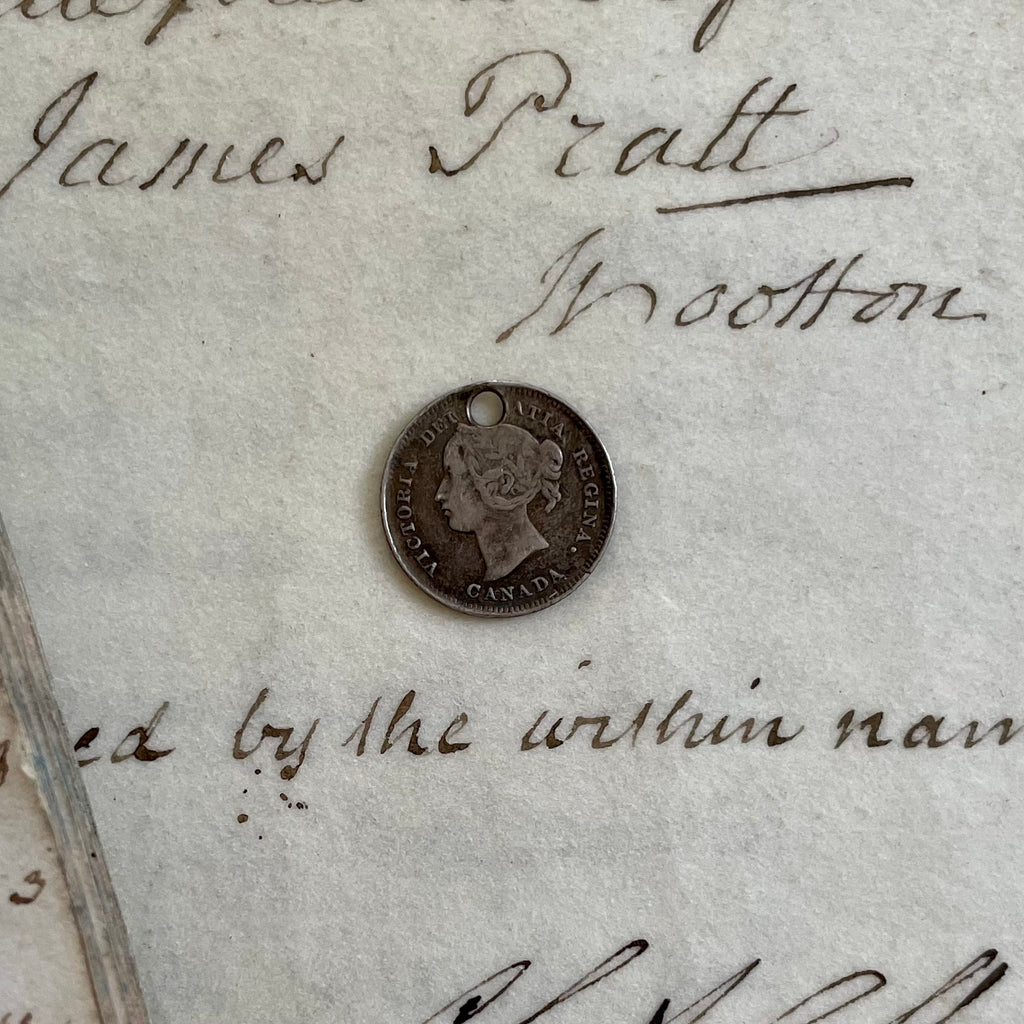 James Pratt
Wootton
VICTORIA DEI ATIA REGINA.
CANADA
ed by the within nam
3